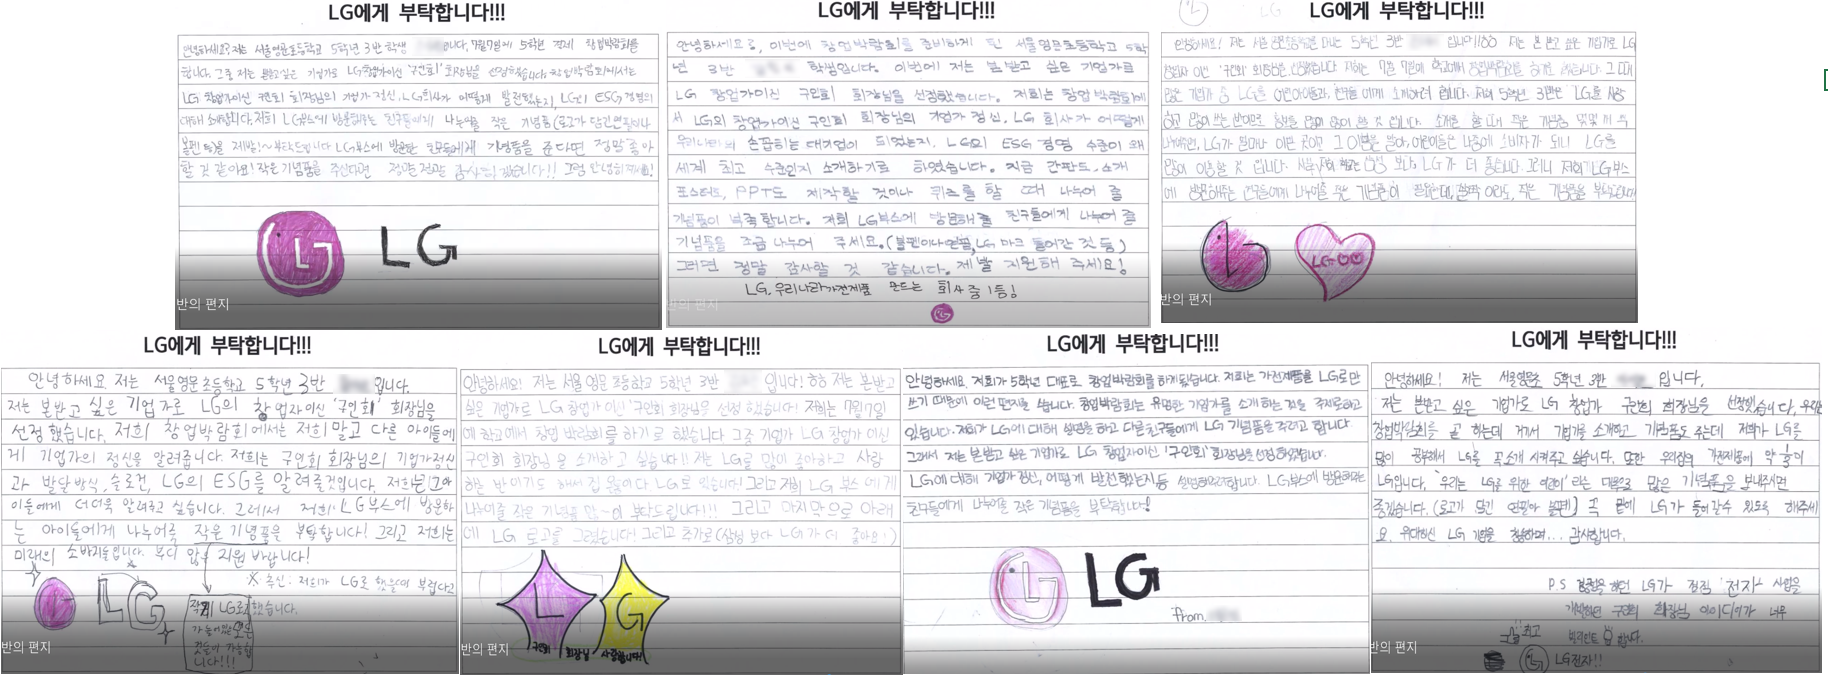 LG에게 부탁합니다!!!
안녕하세요? 저는 서울영문초등학교 5학년 3반 학생 입니다, 7월 7일에 5학년 전체 창업박람회를
합니다. 그중 저는 본받고싶은 기업가로 LG창업가이신 '구인회' 회장님을 선정했습니다. 창업박람회에서는
LG 창업가이신 구인회 회장님의 기업가 정신, LG회사가 어떻게 발전됐는지, LG의 ESG 경영의
대해 소개합니다. 저희 LG부스에 방문해주는 친구들에게 나누어줄 작은 기념품(로고가 담긴 연필이나
볼펜 등)을 제발!~ 부탁드립니다 LG부스에 방문한 친구들에게 기념품을 준다면 정말 좋아
할 것 같아요! 작은 기념품을 주신다면 정말 정말 감사하겠습니다!! 그럼 안녕히계세요!
LG LG
반의 편지
LG에게 부탁합니다!!!
안녕하세요?, 이번에 창업박람회를 준비하게 된 서울영문초등학교 5학
년 3반 학생입니다. 이번에 저는 본받고 싶은 기업가로
LG 창업가이신 구인회 회장님을 선정했습니다. 저희는 창업박람회에
서 LG의 창업가이신 구인회 회장님의 기업가 정신, LG 회사가 어떻게
우리나라의 손꼽히는 대기업이 되었는지, LG의 ESG 경영 수준이 왜
세계 최고 수준인지 소개하기로 하였습니다. 지금 간판도, 소개
포스터도, PPT도 제작할 것이나 퀴즈를 할 때 나누어 줄
기념품이 부족합니다. 저희 LG부스에 방문해줄 친구들에게 나누어 줄
기념품을 조금 나누어 주세요.(볼펜이나 연필, LG 마크 들어간 것 등)
그러면 정말 감사할 것 같습니다. 제발 지원해 주세요!
LG, 우리나라 가전제품 만드는 회사 중 1등!
반의 편지
LG에게 부탁합니다!!!
안녕하세요! 저는 서울 영문초등학교 다니는 5학년 3반 입니다!! 저는 본 받고 싶은 기업가로 LG
창업자 이신 '구인회' 회장님을 선정했습니다. 저희는 7월 7일에 학교에서 창업박람회를 하기로 했습니다. 그 때
많은 기업가 중 LG를 어린아이들과, 친구들에게 소개하려 합니다. 저희 5학년 3반은 LG를 사랑
나누어주면, LG가 얼마나 이런 곳이고 그
많이 이용할 것 입니다. LG가 더 좋습니다. 그러니 저희 LG부스
에 방문해주는 친구들에게 나누어줄 작은 기념품이 작은 기념품을 부탁합니다!
LG
반의 편지
LG에게 부탁합니다!!!
안녕하세요 저는 서울영문초등학교 5학년 3반 입니다.
저는 본받고 싶은 기업가로 LG의 창업자이신 '구인회' 회장님을
선정했습니다. 저희 창업박람회에서는 저희 말고 다른 아이들에
게 기업가의 정신을 알려줍니다. 저희는 구인회 회장님의 기업가정신
과 발달 방식, 슬로건, LG의 ESG를 알려줄것입니다. 저희는 그 아
이들에게 더더욱 알려주고 싶습니다. 그래서 저희 LG부스에 방문하
는 아이들에게 나누어줄 작은 기념품을 부탁합니다! 그리고 저희는
미래의 소비자들입니다. 부디 많이 지원 바랍니다!
※ 추신: 저희가 LG로 했을때 부럽다고
했습니다.
LG
반의 편지
LG에게 부탁합니다!!!
안녕하세요! 저는 서울영문초등학교 5학년 3반 입니다! 저는 본받고
싶은 기업가로 LG 창업가이신 '구인회' 회장님을 선정했습니다! 저희는 7월 7일
에 학교에서 창업박람회를 하기로 했습니다 그중 기업가 LG 창업가 이신
구인회 회장님을 소개하고 싶습니다!! 저는 LG를 많이 좋아하고 사랑
LG로 있습니다! 그리고 저희 LG 부스에게
나누어줄 작은 기념품 부탁드립니다!!! 그리고 마지막으로 아래
에 LG 로고를 그렸습니다! 그리고 추가로 (삼성 보다 LG가 더 좋아요!)
L G
구인회 회장님 사랑합니다!
반의 편지
LG에게 부탁합니다!!!
안녕하세요. 저희가 5학년 대표로 창업박람회를 하게됐습니다. 저희는 가전제품을 LG로만
쓰기 때문에 이런 편지를 씁니다. 창업박람회는 유명한 기업가를 소개하는 것을 주제로하고
있습니다. 저희가 LG에 대해 설명을 하고 다른친구들에게 LG 기념품을 주려고 합니다
그래서 저는 본받고 싶은 기업가로 LG 창업자이신 '구인회' 회장님을 선정하였습니다.
LG에 대해 기업가 정신, 어떻게 발전했는지 등 설명하려합니다. LG부스에 방문하는
친구들에게 나누어줄 작은 기념품을 부탁합니다!
LG LG
from.
반의 편지
LG에게 부탁합니다!!!
안녕하세요! 저는 서울영문초 5학년 3반 입니다,
저는 본받고 싶은 기업가로 LG 창업가 구인회 회장님을 선정했습니다, 우리는
창업박람회를 곧 하는데 거기서 기업가를 소개하고 기념품도 주는데 저희가 LG를
많이 LG를 꼭 소개 시켜주고 싶습니다. 또한 우리집의 가전제품에 약 이
LG입니다, '우리는 LG를 위한 어린이'라는 마음으로 많은 기념품을 보내주면
좋겠습니다. (로고가 담긴 연필이나 볼펜) 꼭 LG가 들어갈수 있도록 해주세
요. 위대하신 LG 기업을 감사합니다.
P.S LG가 '전자' 사업을
구인회 회장님 아이디어가 너무
최고
합니다.
LG전자!!
반의 편지